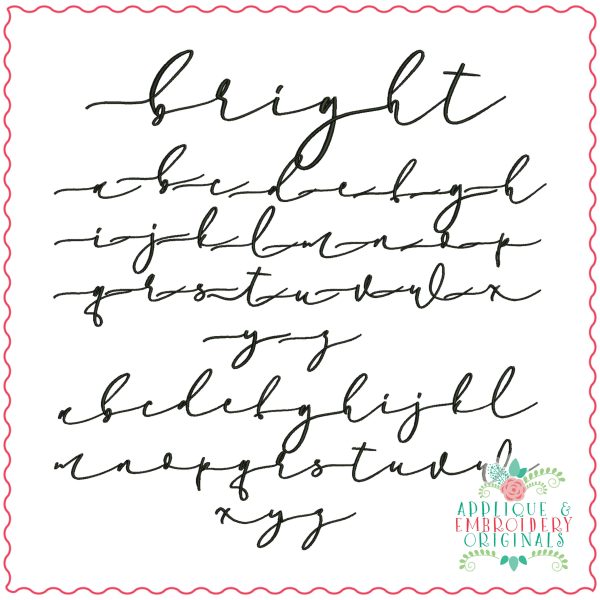 bright
a b c d e f g h
i j k l m n o p
q r s t u v w x
y z
a b c d e f g h i j k l
m n o p q r s t u v w
x y z
APPLIQUE &
EMBROIDERY
ORIGINALS